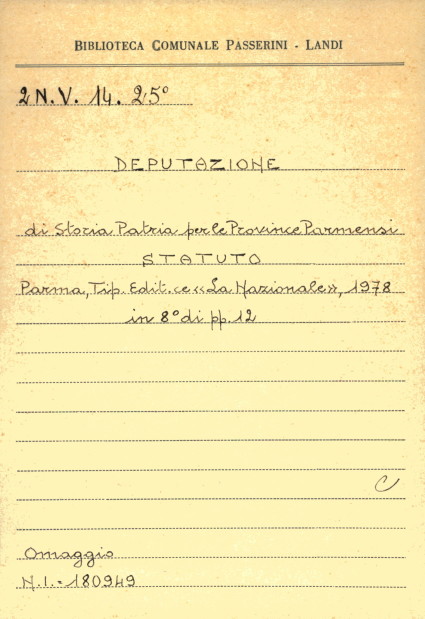 BIBLIOTECA COMUNALE PASSERINI - LANDI
2 N. V. 14. 25°
DEPUTAZIONE
di Storia Patria per le Province Parmensi
STATUTO
Parma, Tip. Edit.ce «La Nazionale», 1978
in 8° di pp. 12
C
Omaggio
N.I.-180949